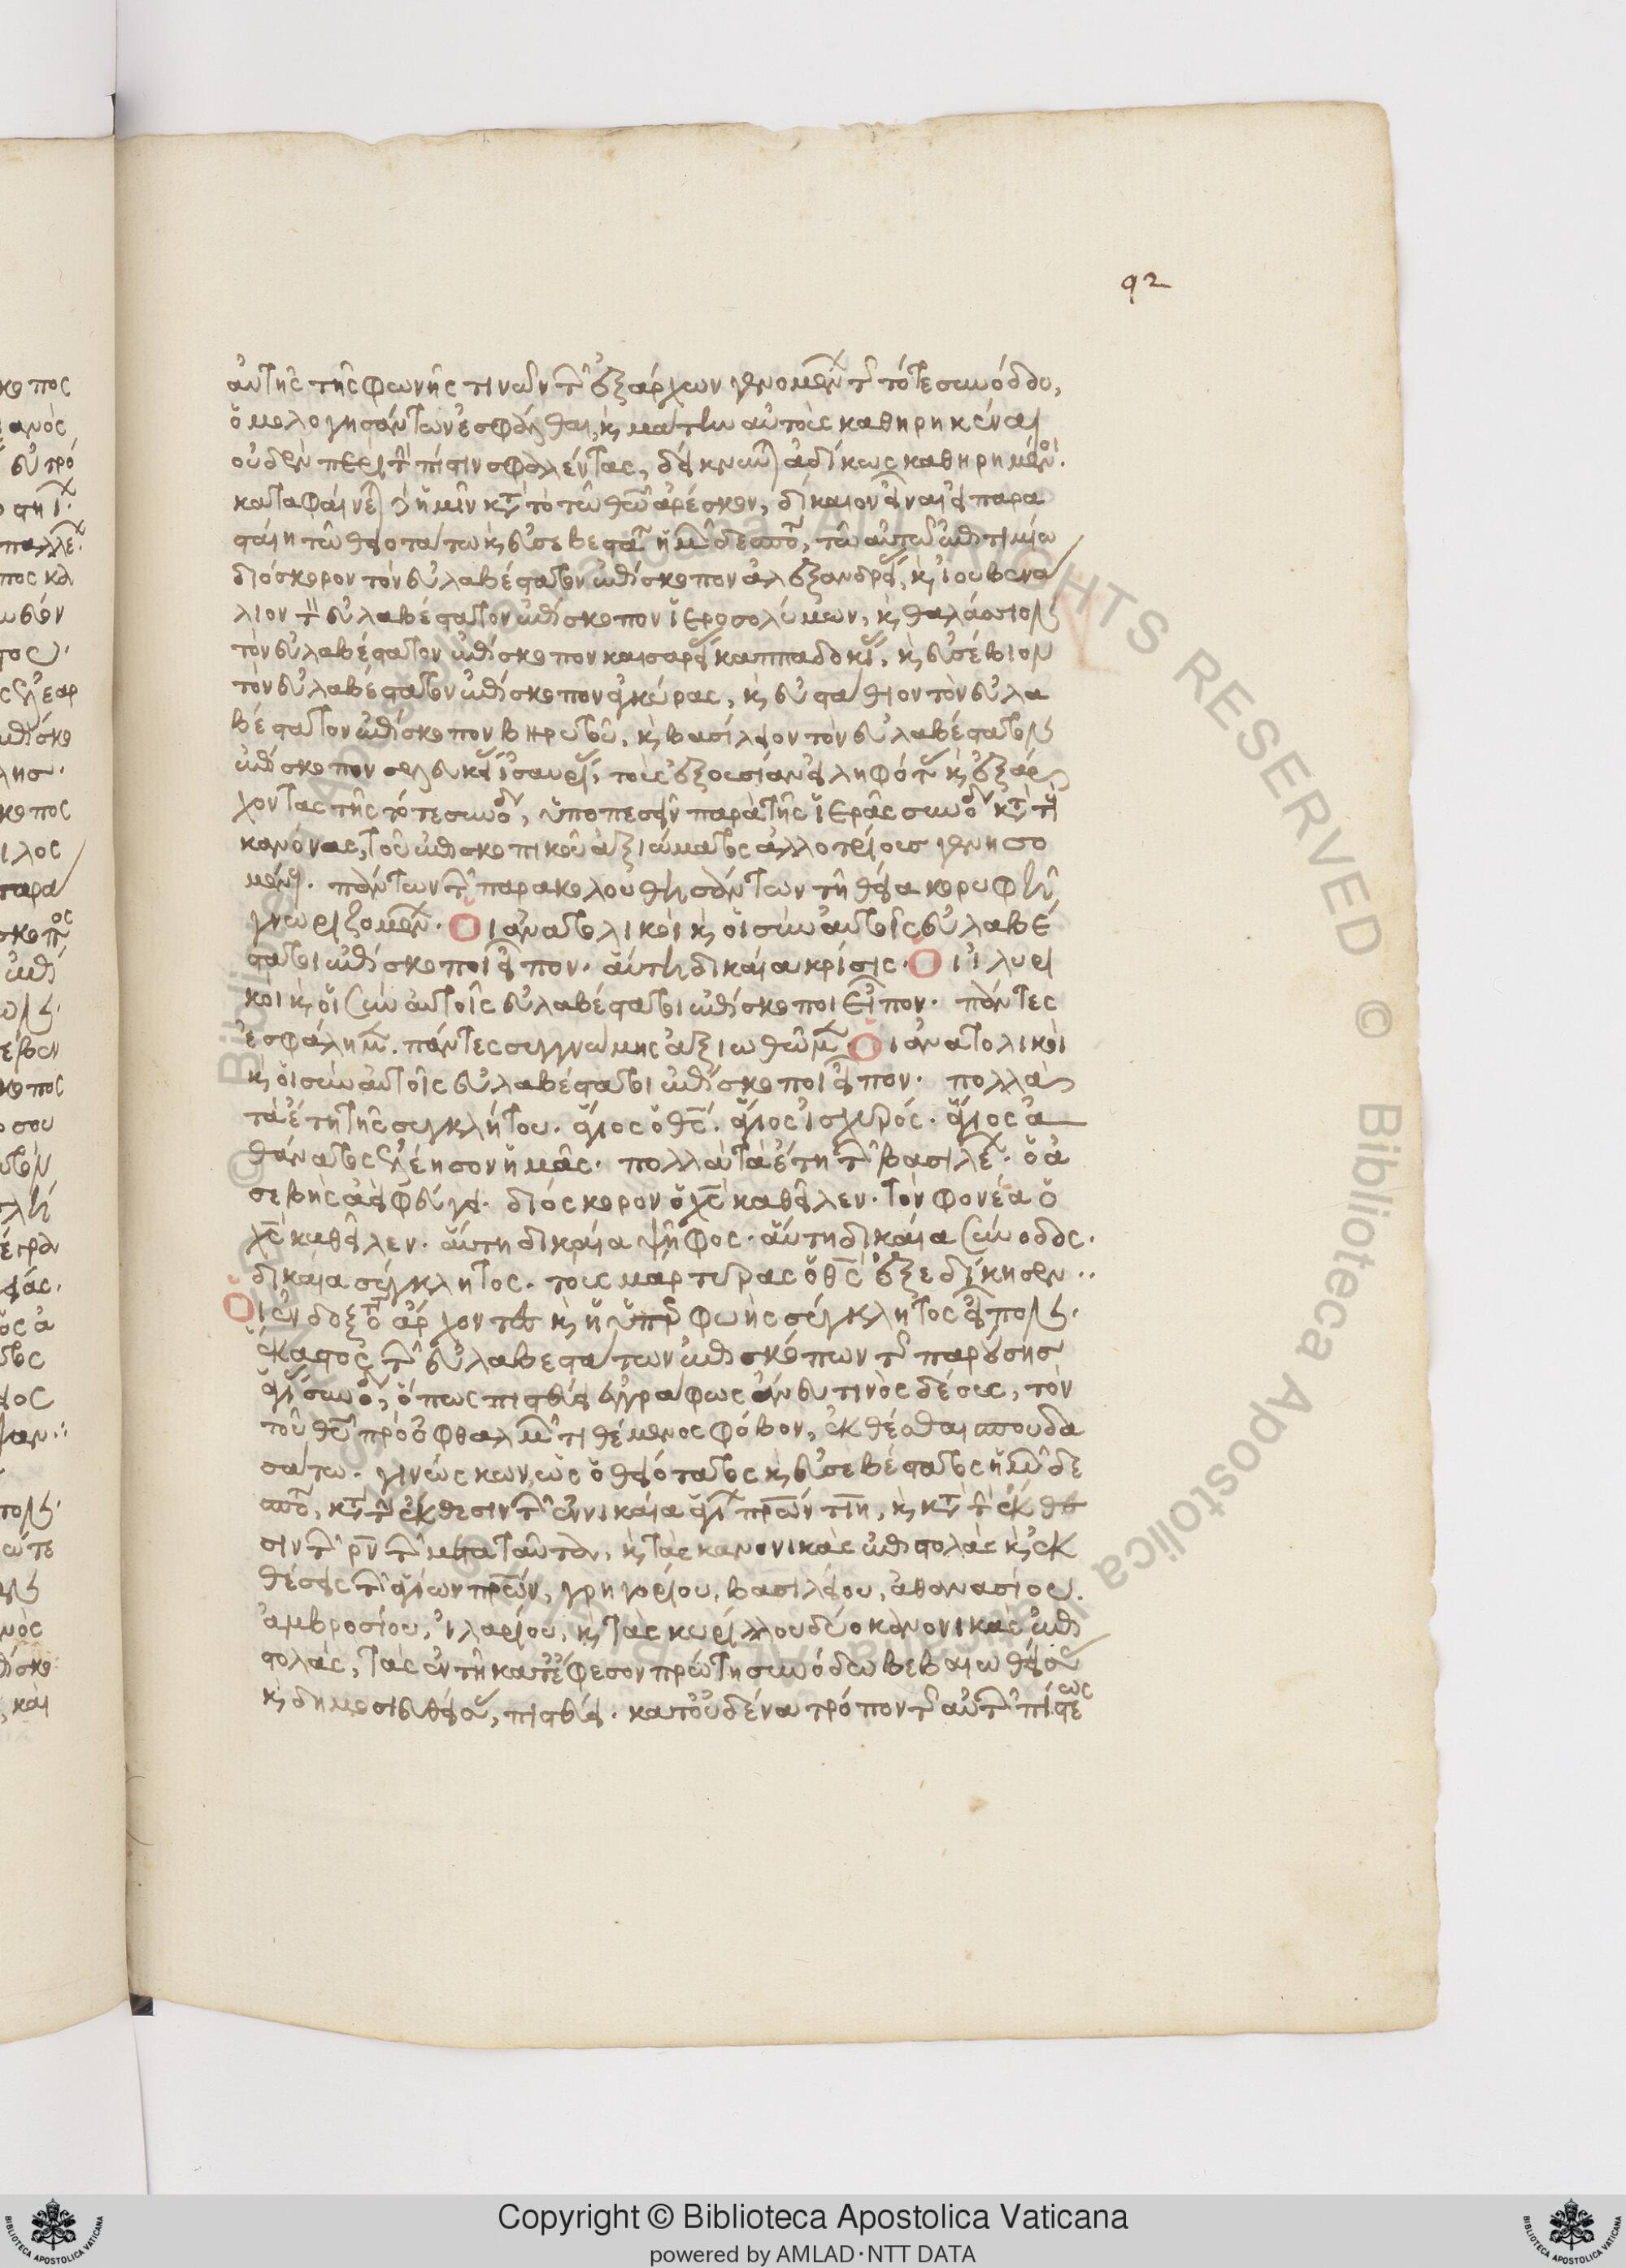 92
αὐτῆς τῆς φωνῆς τινῶν τῶν ἐξάρχων γενομένων τῆς τότε συνόδου,
ὁμολογησάντων ἐσφάλθαι, καὶ μάτην αὐτοὺς καθηρηκέναι
οὐδὲν περὶ τὴν πίστιν σφαλέντας, δείκνυνται ἀδίκως καθηρημένοι.
καταφαίνεται ἡμῖν κατὰ τὸ τῷ θεῷ ἀρέσκον, δίκαιον εἶναι εἰ παρα
σταίη τῷ θειοτάτῳ καὶ εὐσεβεστάτῳ ἡμῶν δεσπότῃ, τῷ αὐτῷ ἐπιτιμίῳ
διόσκορον τὸν εὐλαβέστατον ἐπίσκοπον ἀλεξανδρείας, καὶ ἰουβενά
λιον τὸν εὐλαβέστατον ἐπίσκοπον ἱεροσολύμων, καὶ θαλάσσιον
τὸν εὐλαβέστατον ἐπίσκοπον καισαρείας καππαδοκίας, καὶ εὐσέβιον
τὸν εὐλαβέστατον ἐπίσκοπον ἀγκύρας, καὶ εὐστάθιον τὸν εὐλα
βέστατον ἐπίσκοπον βηρυτοῦ, καὶ βασίλειον τὸν εὐλαβέστατον
ἐπίσκοπον σελευκείας ἰσαυρίας, τοὺς ἐξουσίαν εἰληφότας καὶ ἐξάρ
χοντας τῆς τότε συνόδου, ὑποπεσεῖν παρὰ τῆς ἱερᾶς συνόδου κατὰ τοὺς
κανόνας, τοῦ ἐπισκοπικοῦ ἀξιώματος ἀλλοτρίους γενησο
μένους. πάντων τῶν παρακολουθησάντων τῇ θείᾳ κορυφῇ
γνωριζομένων. Οἱ ἀνατολικοὶ καὶ οἱ σὺν αὐτοῖς εὐλαβέ
στατοι ἐπίσκοποι εἶπον. αὕτη δικαία κρίσις. Οἱ ἰλυρι
κοὶ καὶ οἱ σὺν αὐτοῖς εὐλαβέστατοι ἐπίσκοποι εἶπον. πάντες
ἐσφάλημεν. πάντες συγγνώμης ἀξιωθῶμεν. Οἱ ἀνατολικοὶ
καὶ οἱ σὺν αὐτοῖς εὐλαβέστατοι ἐπίσκοποι εἶπον. πολλὰ
τὰ ἔτη τῆς συγκλήτου. ἅγιος ὁ θς. ἅγιος ἰσχυρός. ἅγιος ἀ
θάνατος ἐλέησον ἡμᾶς. πολλὰ τὰ ἔτη τῶν βασιλέων. ὁ ἀ
σεβὴς ἀεὶ φεύγει. διόσκορον ὁ χς καθεῖλεν. τὸν φονέα ὁ
χς καθεῖλεν. αὕτη δικαία ψῆφος. αὕτη δικαία σύνοδος.
δικαία σύγκλητος. τοὺς μάρτυρας ὁ θς ἐξεδίκησεν..
Οἱ ἐνδοξότατοι ἄρχοντες καὶ ἡ ὑπερφυὴς σύγκλητος εἶπον.
ἕκαστος τῶν εὐλαβεστάτων ἐπισκόπων τῆς παρούσης
ἁγίας συνόδου, ὅπως πιστεύει ἐγγράφως ἄνευ τινὸς δέους, τὸν
τοῦ θεοῦ πρὸ ὀφθαλμῶν τιθέμενος φόβον, ἐκθέσθαι σπουδα
σάτω. γινώσκων, ὡς ὁ θειότατος καὶ εὐσεβέστατος ἡμῶν δε
σπότης, κατὰ τὴν ἔκθεσιν τῶν ἐν νικαίᾳ ἁγίων πρων τιη, καὶ κατὰ τὴν ἔκθε
σιν τῶν ρν τῶν μετὰ ταῦτα, καὶ τὰς κανονικὰς ἐπιστολὰς καὶ ἐκ
θέσεις τῶν ἁγίων πρων, γρηγορίου, βασιλείου, ἀθανασίου.
ἀμβροσίου, ἱλαρίου, καὶ τὰς κυρίλλου δύο κανονικὰς ἐπι
στολάς, τὰς ἐν τῇ κατ' ἔφεσον πρώτῃ συνόδῳ βεβαιωθείσας
καὶ δημοσιευθείσας, πιστεύει. κατ' οὐδένα τρόπον τῆς αὐτῶν πίστεως